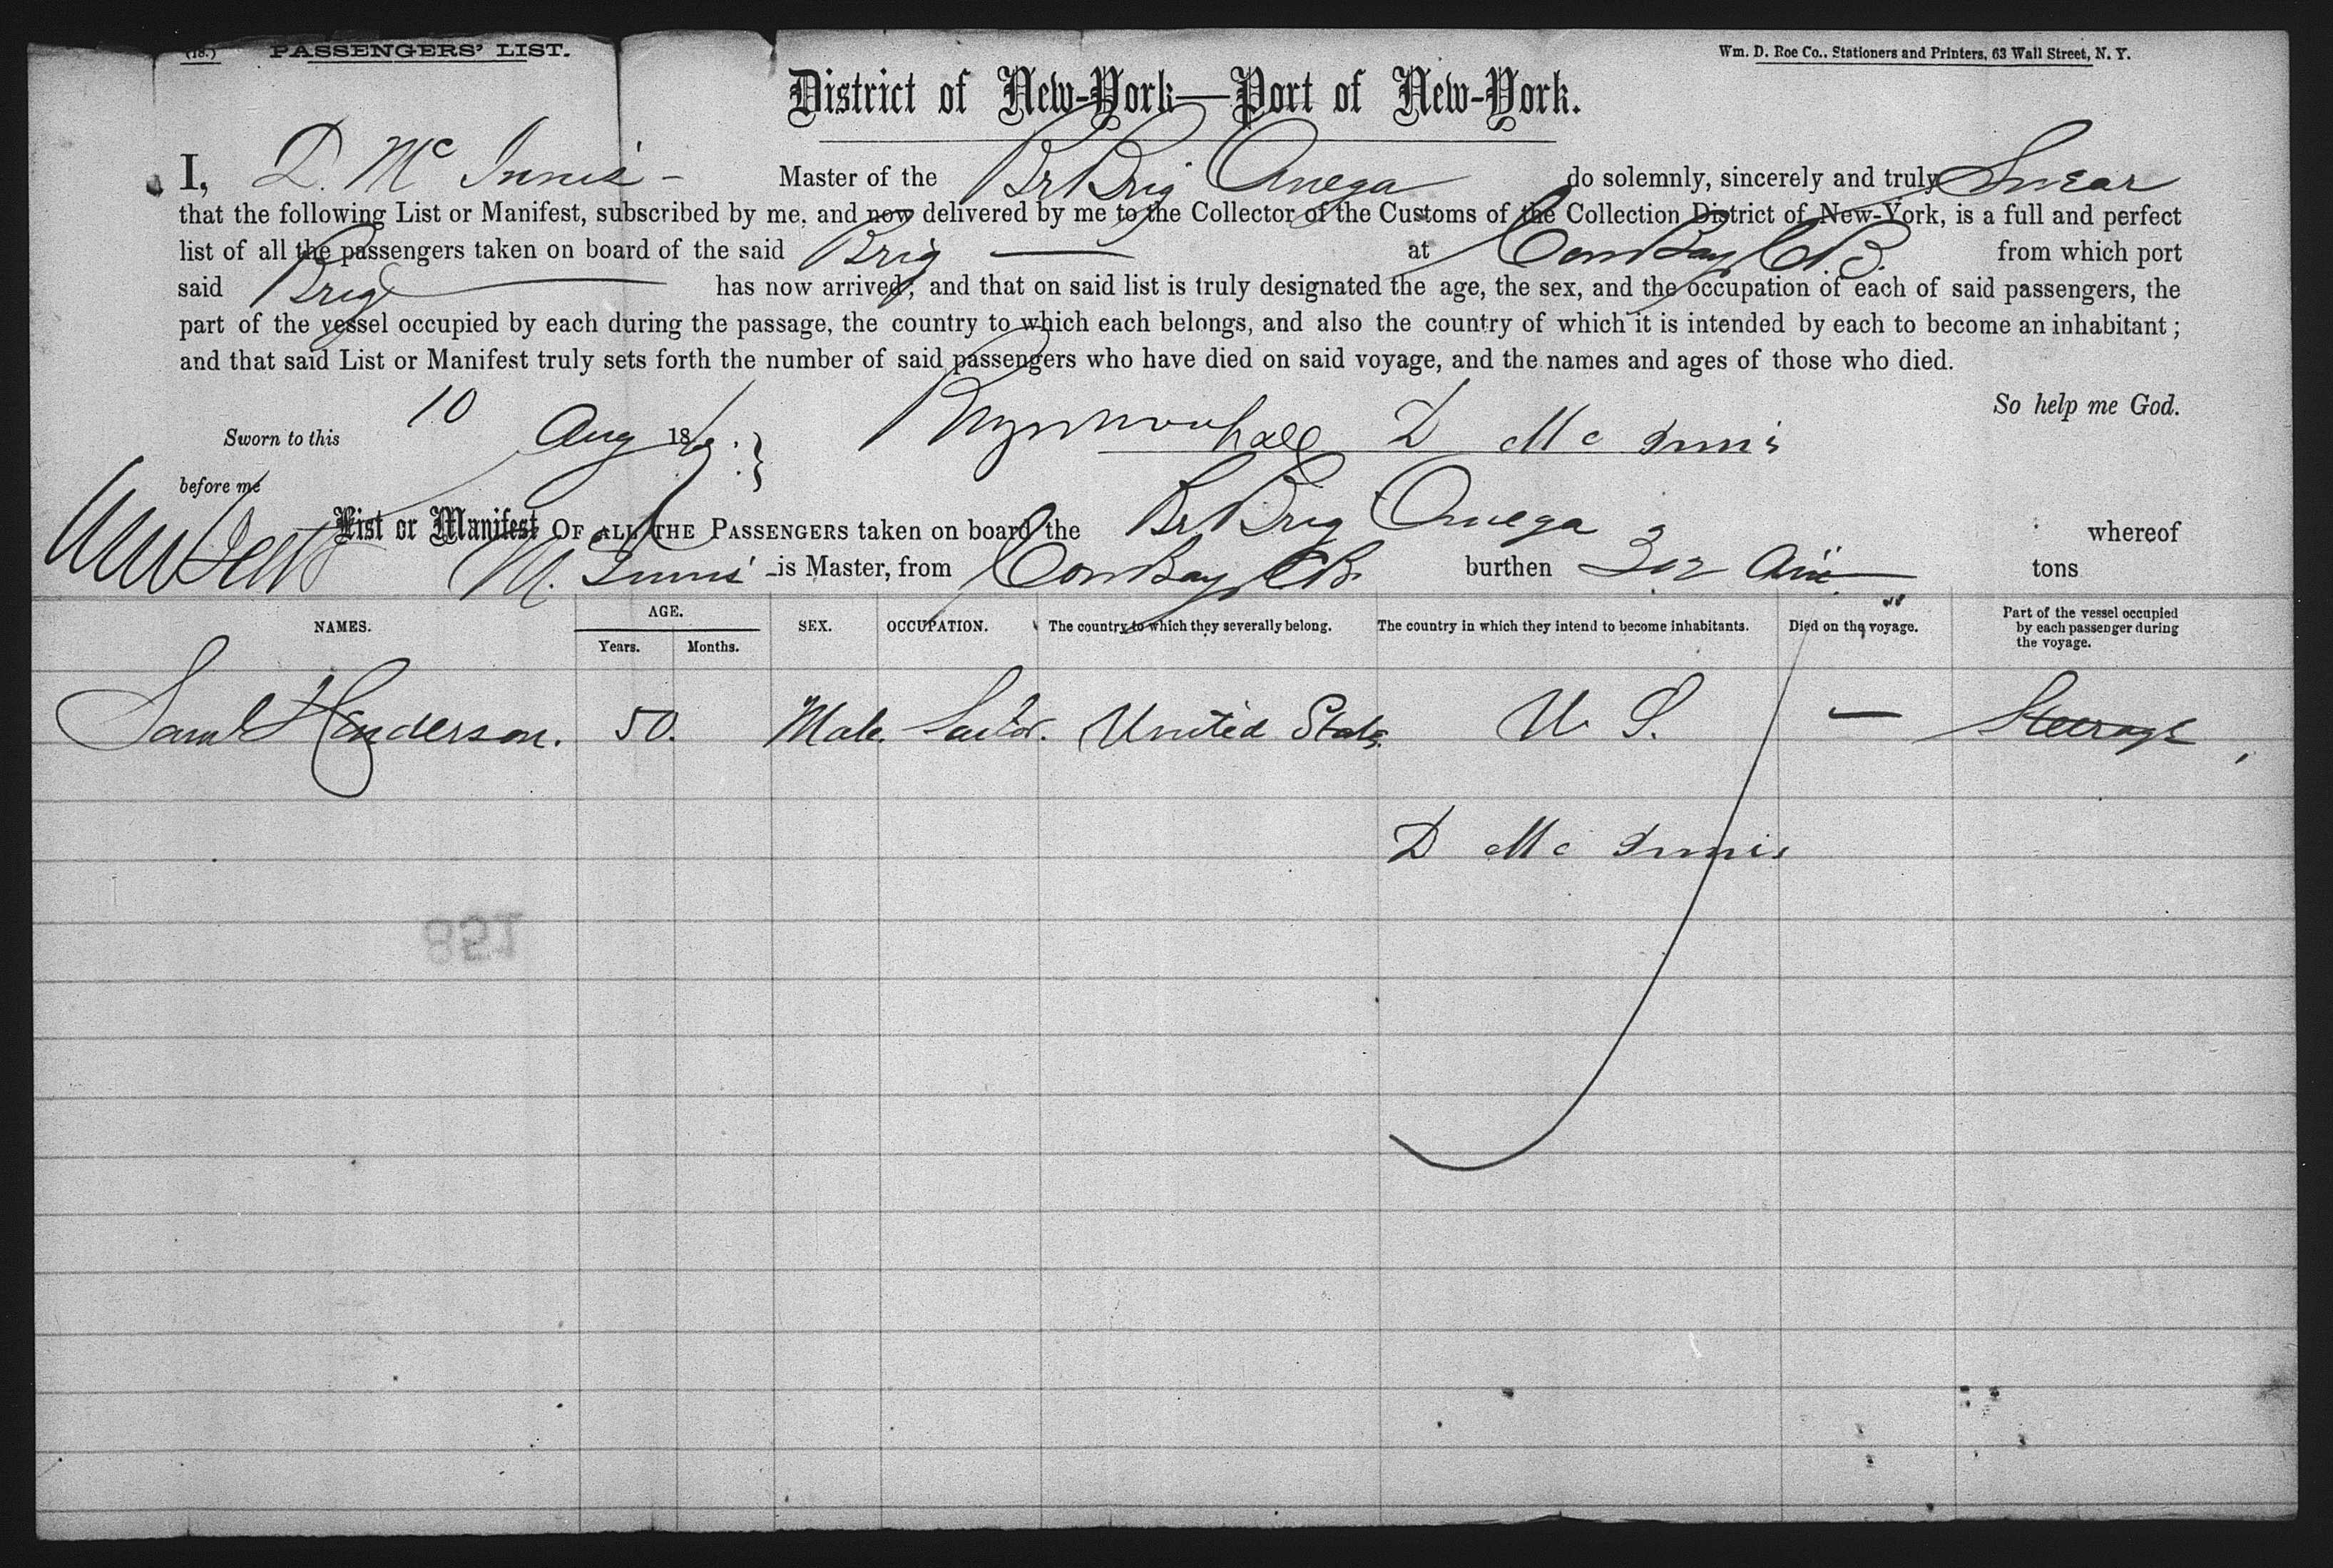 (18.) PASSENGERS' LIST.
Wm. D. Roe Co., Stationers and Printers, 63 Wall Street, N. Y.
District of New-York—Port of New-York.
I, D. Mc Innis - Master of the Br Brig Omega do solemnly, sincerely and truly Swear
that the following List or Manifest, subscribed by me, and now delivered by me to the Collector of the Customs of the Collection District of New-York, is a full and perfect
list of all the passengers taken on board of the said Brig — at Cow Bay C.B. from which port
said Brig has now arrived; and that on said list is truly designated the age, the sex, and the occupation of each of said passengers, the
part of the vessel occupied by each during the passage, the country to which each belongs, and also the country of which it is intended by each to become an inhabitant;
and that said List or Manifest truly sets forth the number of said passengers who have died on said voyage, and the names and ages of those who died.
So help me God.
Sworn to this 10 Aug 18 D Mc Innis
before me
List or Manifest OF ALL THE PASSENGERS taken on board the Br Brig Omega whereof
Mc Innis is Master, from Cow Bay CB burthen 302 tons
NAMES. AGE. Years. Months. SEX. OCCUPATION. The country to which they severally belong. The country in which they intend to become inhabitants. Died on the voyage. Part of the vessel occupied by each passenger during the voyage.
Saml Henderson. 50. Male. Sailor. United States U. S. — Steerage
D Mc Innis
851